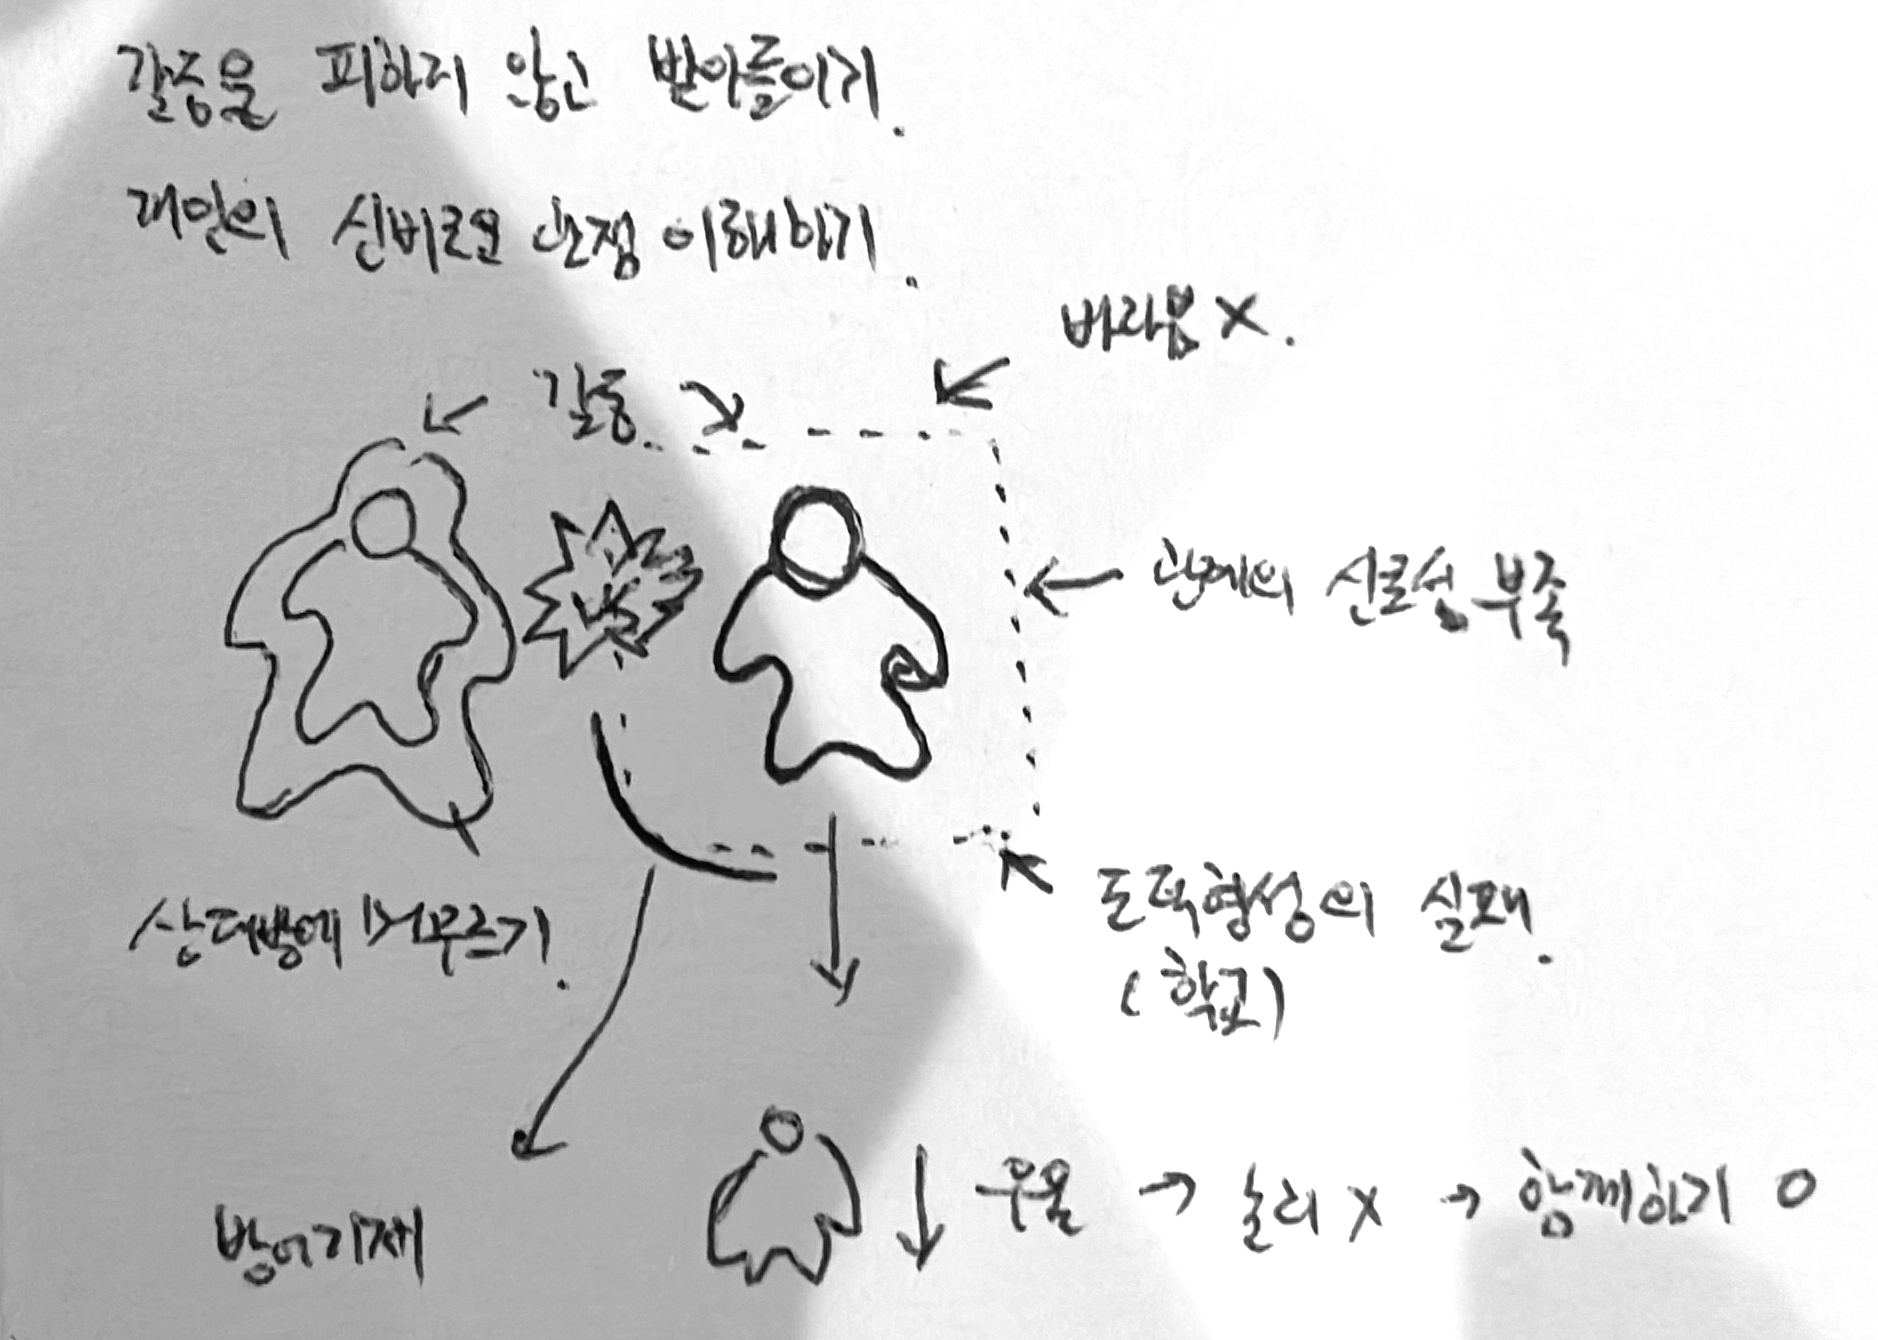 갈등을 피하지 않고 받아들이기.
개인의 신비로운 관점 이해하기.
바라봄 X.
갈등
관계의 신뢰성 부족
상대방에 머무르기.
도덕형성의 실패.
(학교)
방어기제
↓ 우울 → 논리 X → 함께하기 O